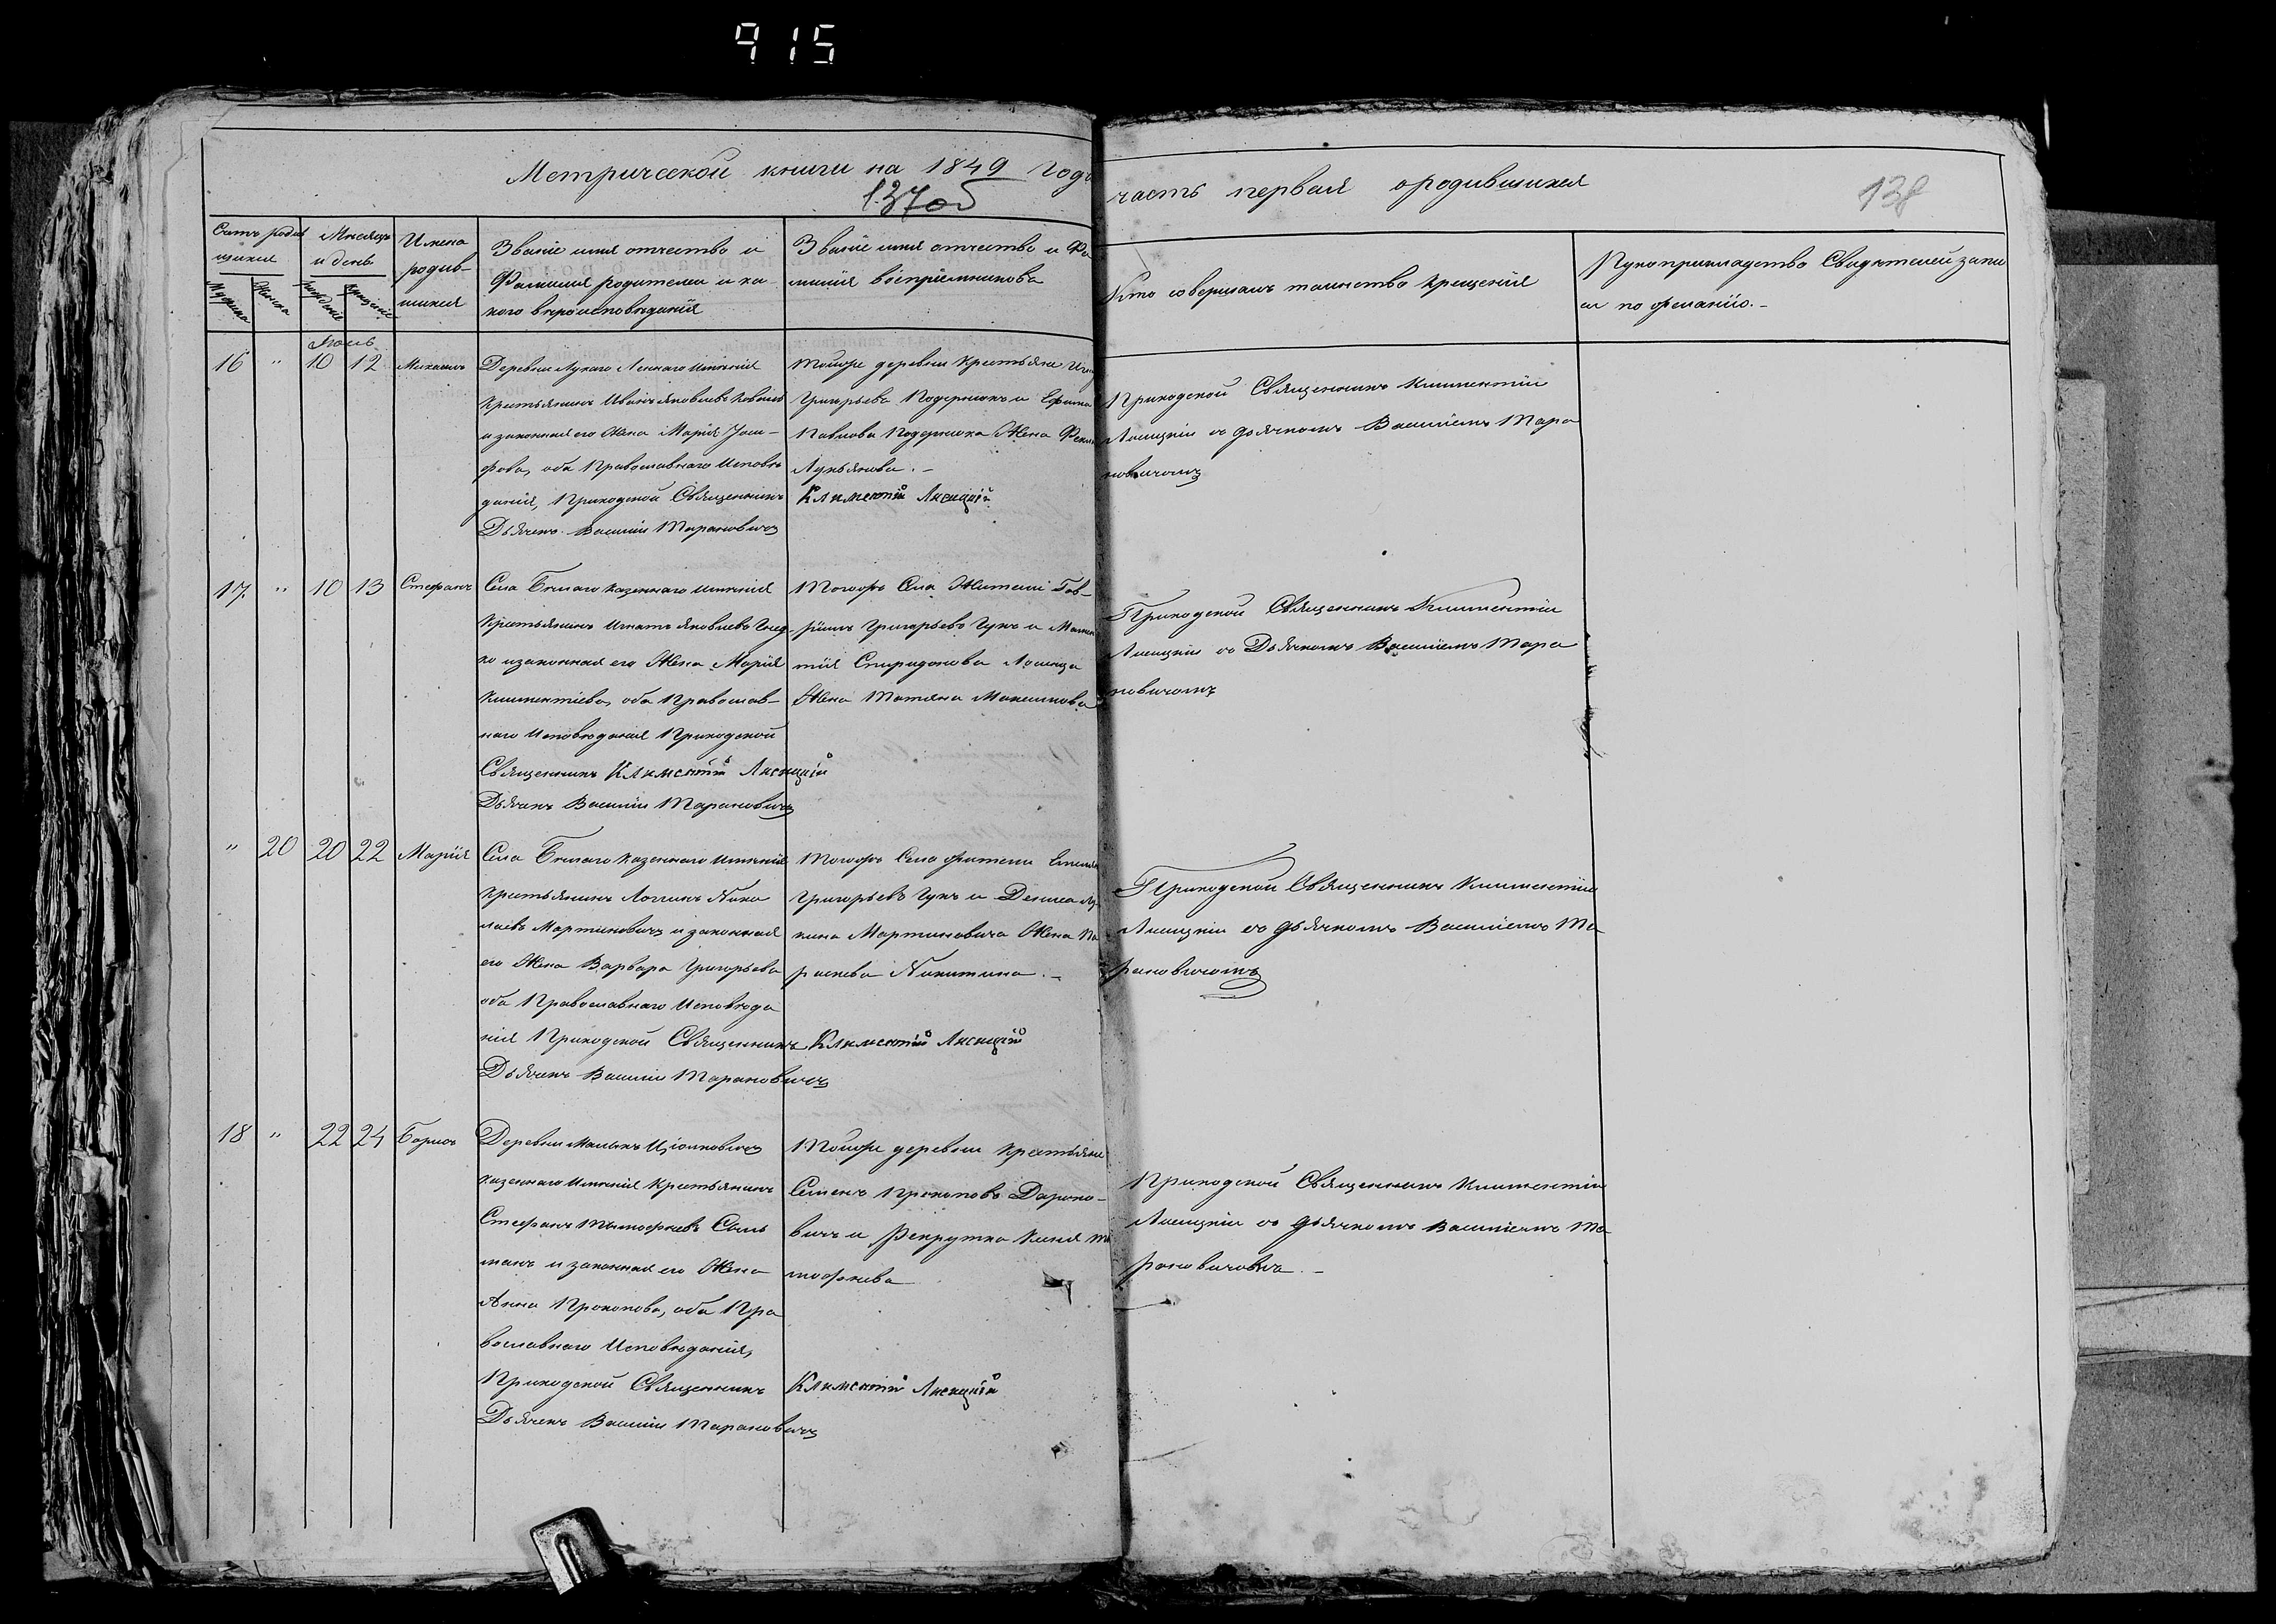 915
Метрической книги на 1849 Годъ
137об
часть первая ородившихся
138
Счетъ родив
шихся
Мѣсяцъ
и день
Имена
родив-
шихся
Званіе имя отчество и
Фамилия родителей и ка-
кого вѣроисповѣданія
Званіе имя отчество и Фа
милия воспріемниковъ
Кто совершалъ таинство крещенія
Рукоприкладство Свидѣтелей запи
си по желанію.-
Мужска
Женска
рожденіе
крещеніе
16 " 10 12
Деревни Лукаго имѣнія
Крестьянинъ Иванъ Яковлевъ
и законная его Жена Марія
фова, оба Православнаго Исповѣ
данія, Приходской Священникъ
Дьячекъ Василій Тарановичъ
Тойже деревни Крестьяне
Григорьевъ и
Павлова Жена
Лукьянова.-
Климентій Лисицкій
Приходской Священникъ Климентій
Лисицкій съ дьячкомъ Василіемъ Тара
новичомъ
17. " 10 13 Стефанъ
Села Бѣлаго казеннаго имѣнія
Крестьянинъ Игнатъ Яковлевъ
ко изаконная его Жена Марія
Климентіева, оба Православ-
наго Исповѣданія Приходской
Священникъ Климентій Лисицкій
Дьячекъ Василій Тарановичъ
Тогожъ Села Жители Гав-
ріилъ Григорьевъ Чукъ и
Спиридонова
Жена Татяна Максимова
Приходской Священникъ Климентій
Лисицкій съ Дьячкомъ Василіемъ Тара
новичомъ
" 20 20 22 Марія
Села Бѣлаго казеннаго имѣнія
Крестьянинъ Логинъ Нико
лаевъ Мартиновичъ и законная
его Жена Варвара Григорьева
оба Православнаго Исповѣда
нія Приходской Священникъ Климентій Лисицкій
Дьячекъ Василій Тарановичъ
Тогожъ Села жители
Григорьевъ Чукъ и Дениса Лу-
кина Мартиновича Жена Па
раскева Никитина.-
Приходской Священникъ Климентій
Лисицкій съ дьячкомъ Василіемъ Та
рановичомъ
18 " 22 24 Борисъ
Деревни
казеннаго имѣнія Крестьянинъ
Стефанъ Тымофѣевъ
и законная его Жена
Анна Прокопова, оба Пра
вославнаго Исповѣданія,
Приходской Священникъ
Дьячекъ Василій Тарановичъ
Тойже деревни Крестьяне
Семенъ Прокоповъ Дароко-
вичъ и Рекрутка Ти
мофѣева
Климентій Лисицкій
Приходской Священникъ Климентій
Лисицкій съ дьячкомъ Василіемъ Та
рановичомъ.-